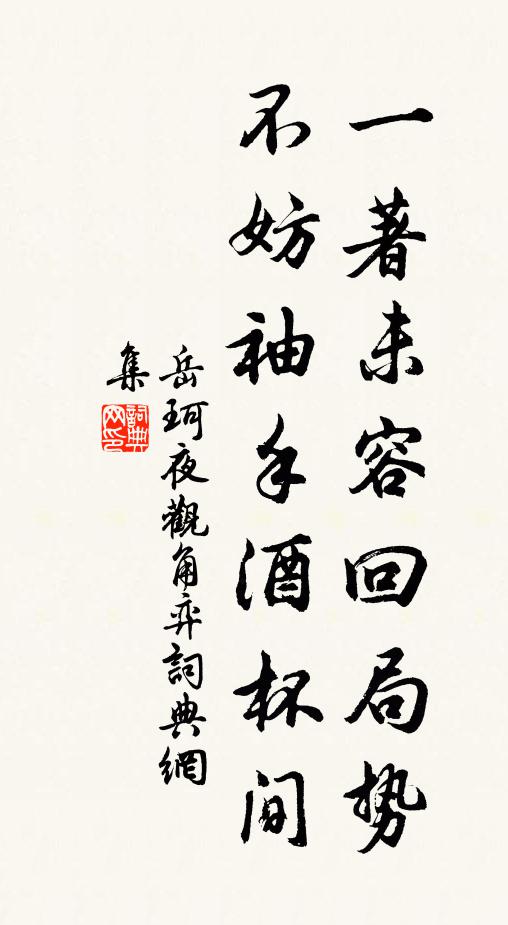 一著未容回局势
不妨袖手酒杯间
岳珂夜觀角弈詞典網
集
詞典网印